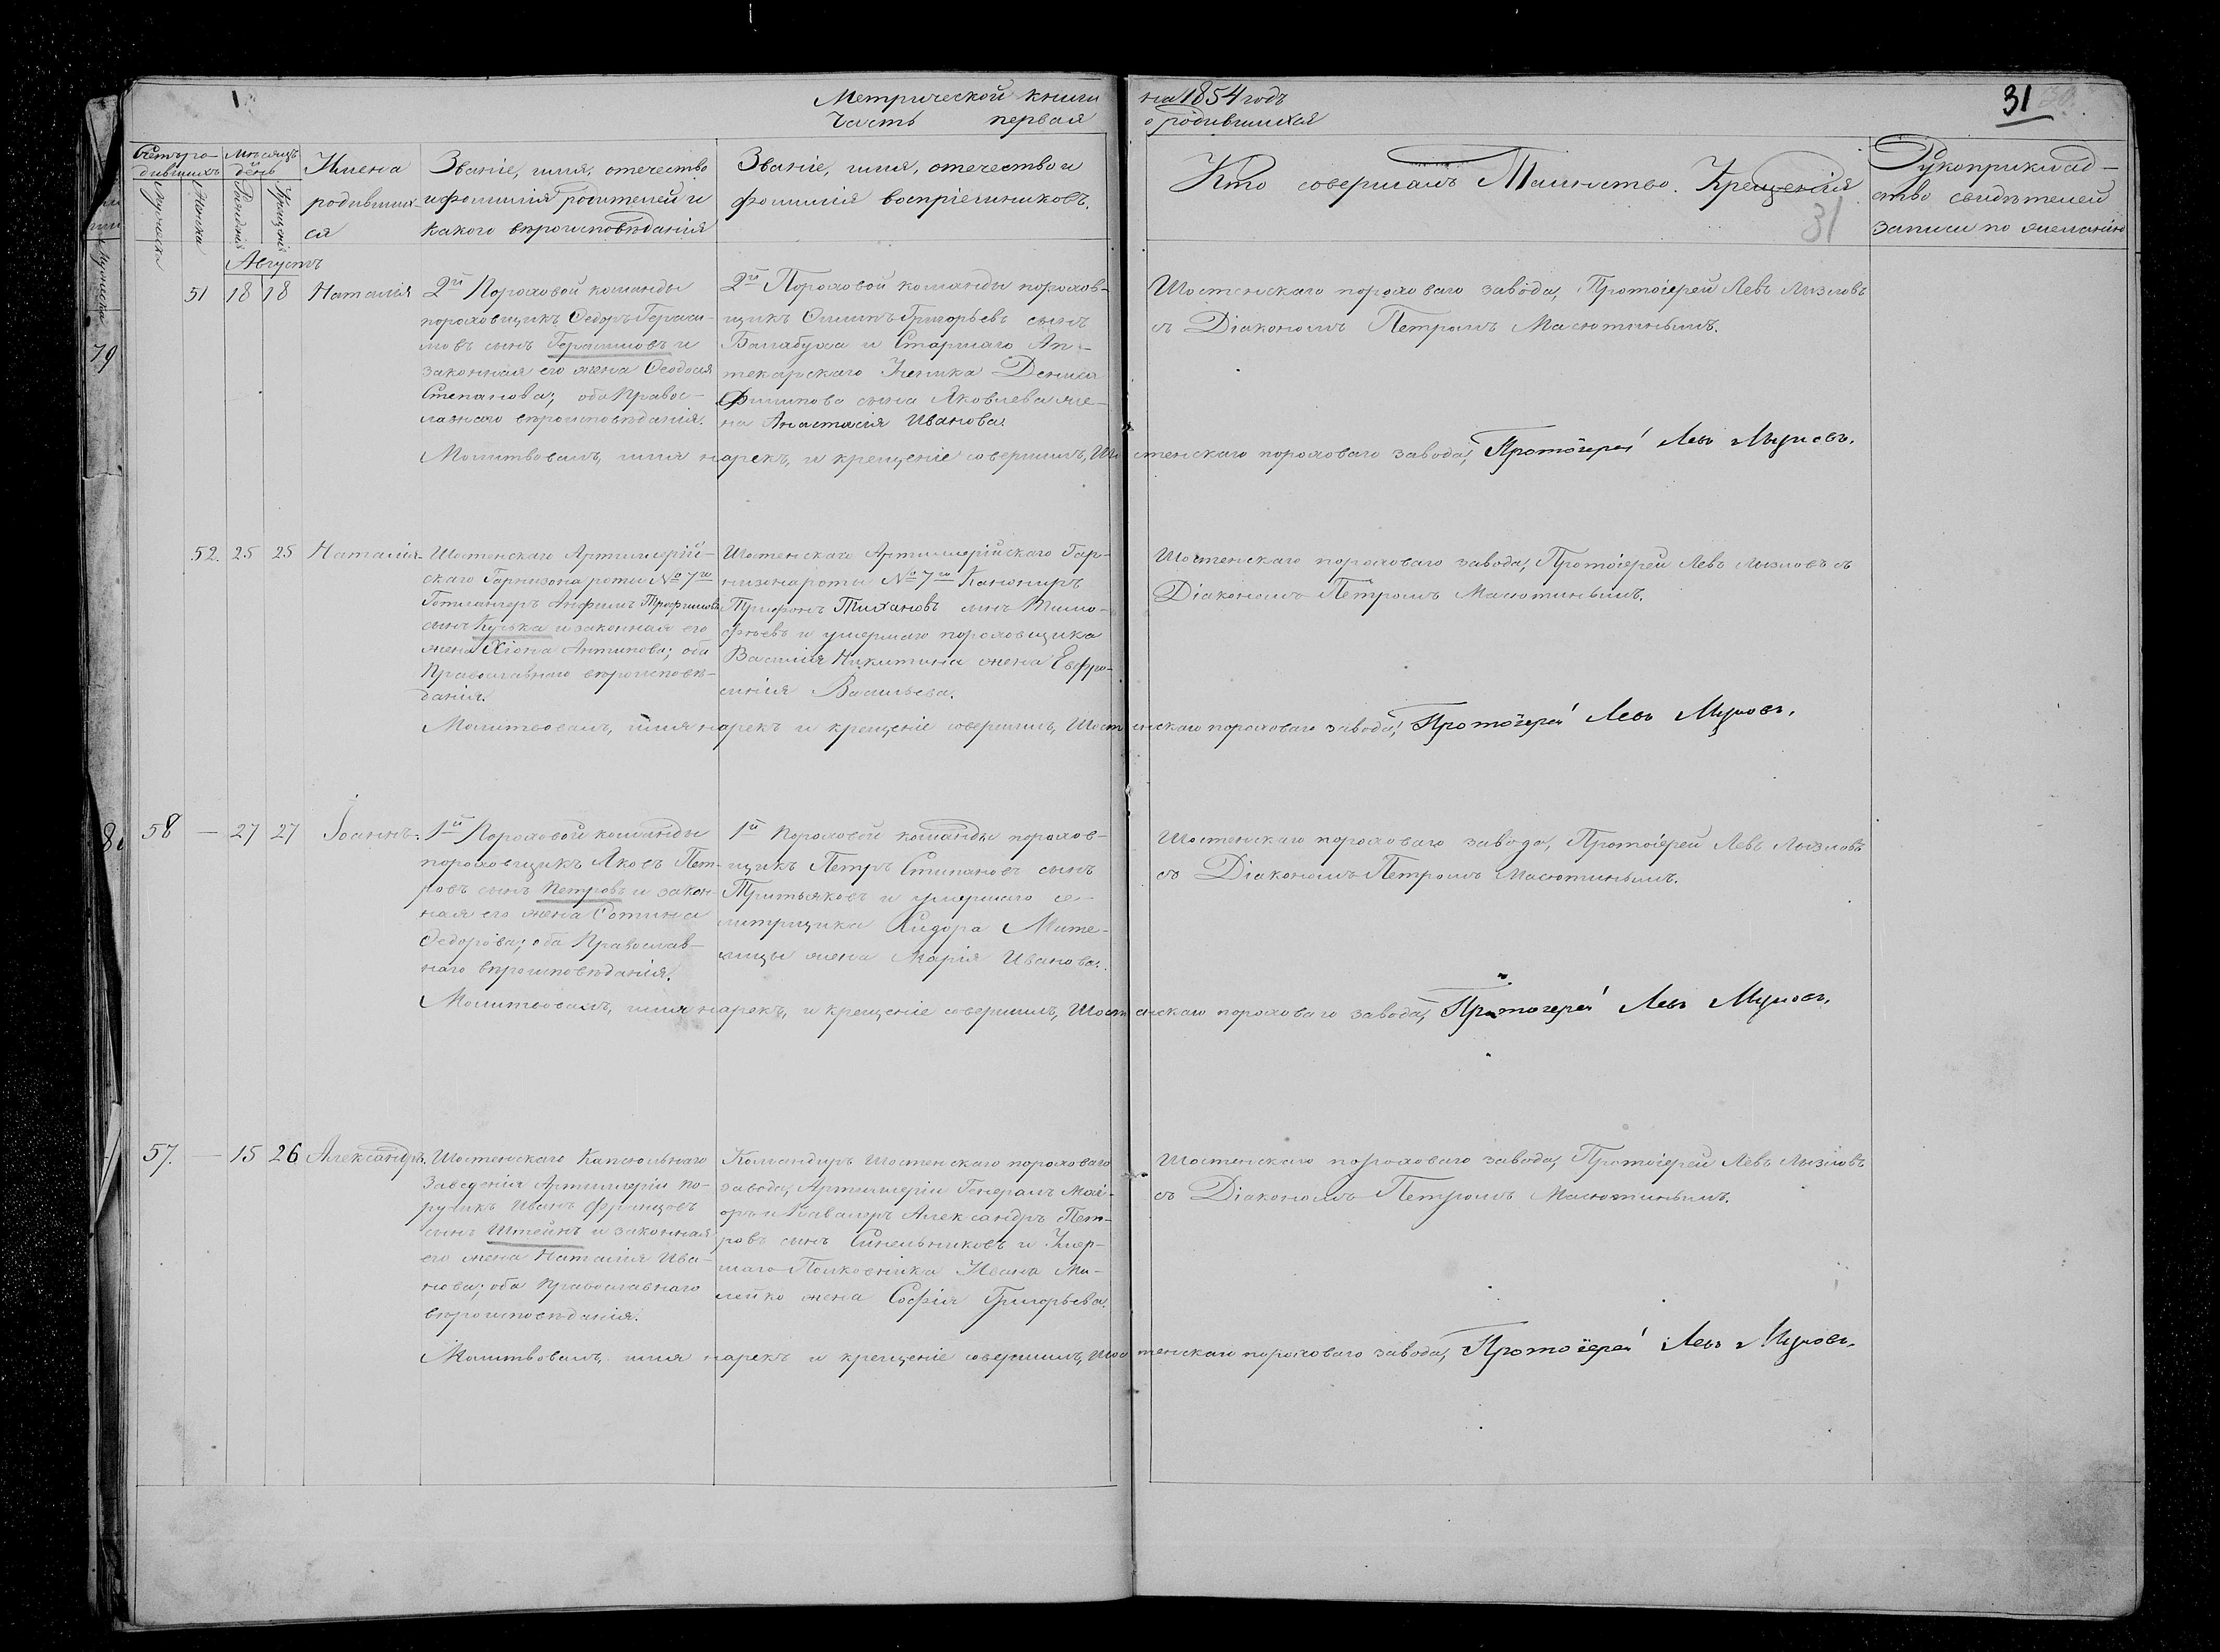 1
Метрической книги
часть первая
на 1854 годъ
о родившихся
31 30
Счетъ ро-
дившихъ
Мѣсяцъ
день
Мужеска
Женска
Рожденія
Крещенія
Имена
родивших-
ся
Званіе, имя, отечество
и фамилія родителей и
какого вѣроисповѣданія
Званіе, имя, отечество и
фамилія воспріемниковъ.
Кто совершалъ Таинство Крещенія
31
Рукоприклад-
ство свидѣтелей
записи по желанію
Августъ
51 18 18 Наталія
2й Пороховой команды
пороховщикъ Ѳедоръ Гераси-
мовъ сынъ Герасимовъ и
законная его жена Ѳеодосія
Степанова; оба Правос-
лавнаго вѣроисповѣданія.
2й Пороховой команды порохов-
щикъ Григорьевъ сынъ
Балабуха и Старшаго Ап-
текарскаго Ученика Дениса
Филипова сына Яковлева же-
на Анастасія Иванова.
Шостенскаго пороховаго завода, Протоіерей Левъ Лызловъ
съ Діакономъ Петромъ Масютинымъ.
Молитвовалъ, имя нарекъ, и крещеніе совершилъ, Шостенскаго пороховаго завода, Протоіерей Левъ Лызловъ.
52. 25 25 Наталія
Шостенскаго Артиллерій-
скаго Гарнизона роты № 7го
Гантлангеръ Анфимъ Трофимовъ
сынъ Кузька и законная его
жена Хіона Антипова; оба
Православнаго вѣроисповѣ-
данія.
Шостенскаго Артиллерійскаго Гар-
низона роты № 7го Канониръ
Трифонъ Тихановъ сынъ Тимо-
фѣевъ и умершаго пороховщика
Василія Никитина жена Евфро-
синія Васильева.
Шостенскаго пороховаго завода, Протоіерей Левъ Лызловъ съ
Діакономъ Петромъ Масютинымъ.
Молитвовалъ, имя нарекъ и крещеніе совершилъ, Шостенскаго пороховаго завода, Протоіерей Левъ Лызловъ.
58 — 27 27 Іоаннъ.
1й Пороховой команды
пороховщикъ Яковъ Пет-
ровъ сынъ Петровъ и закон-
ная его жена
Ѳедорова; оба Православ-
наго вѣроисповѣданія.
1й Пороховой команды порохов-
щикъ Петръ Стипановъ сынъ
Тритьяковъ и умершаго се-
литрщика Сидора Мите-
лицы жена Марія Иванова.
Шостенскаго пороховаго завода, Протоіерей Левъ Лызловъ
съ Діакономъ Петромъ Масютинымъ.
Молитвовалъ, имя нарекъ, и крещеніе совершилъ, Шостенскаго пороховаго завода, Протоіерей Левъ Лызловъ.
57. — 15 26 Александръ.
Шостенскаго Капсюльнаго
Заведенія Артиллеріи по-
ручикъ Иванъ Францовъ
сынъ Штейнъ и законная
его жена Наталія Ива-
нова; оба Православнаго
вѣроисповѣданія.
Командиръ Шостенскаго пороховаго
завода, Артиллеріи Генералъ Маі-
оръ и Кавалеръ Александръ Пет-
ровъ сынъ Синельниковъ и Умер-
шаго Полковника Ивана Ма-
лейко жена Софія Григорьева.
Шостенскаго пороховаго завода, Протоіерей Левъ Лызловъ
съ Діакономъ Петромъ Масютинымъ.
Молитвовалъ, имя нарекъ и крещеніе совершилъ, Шостенскаго пороховаго завода, Протоіерей Левъ Лызловъ.